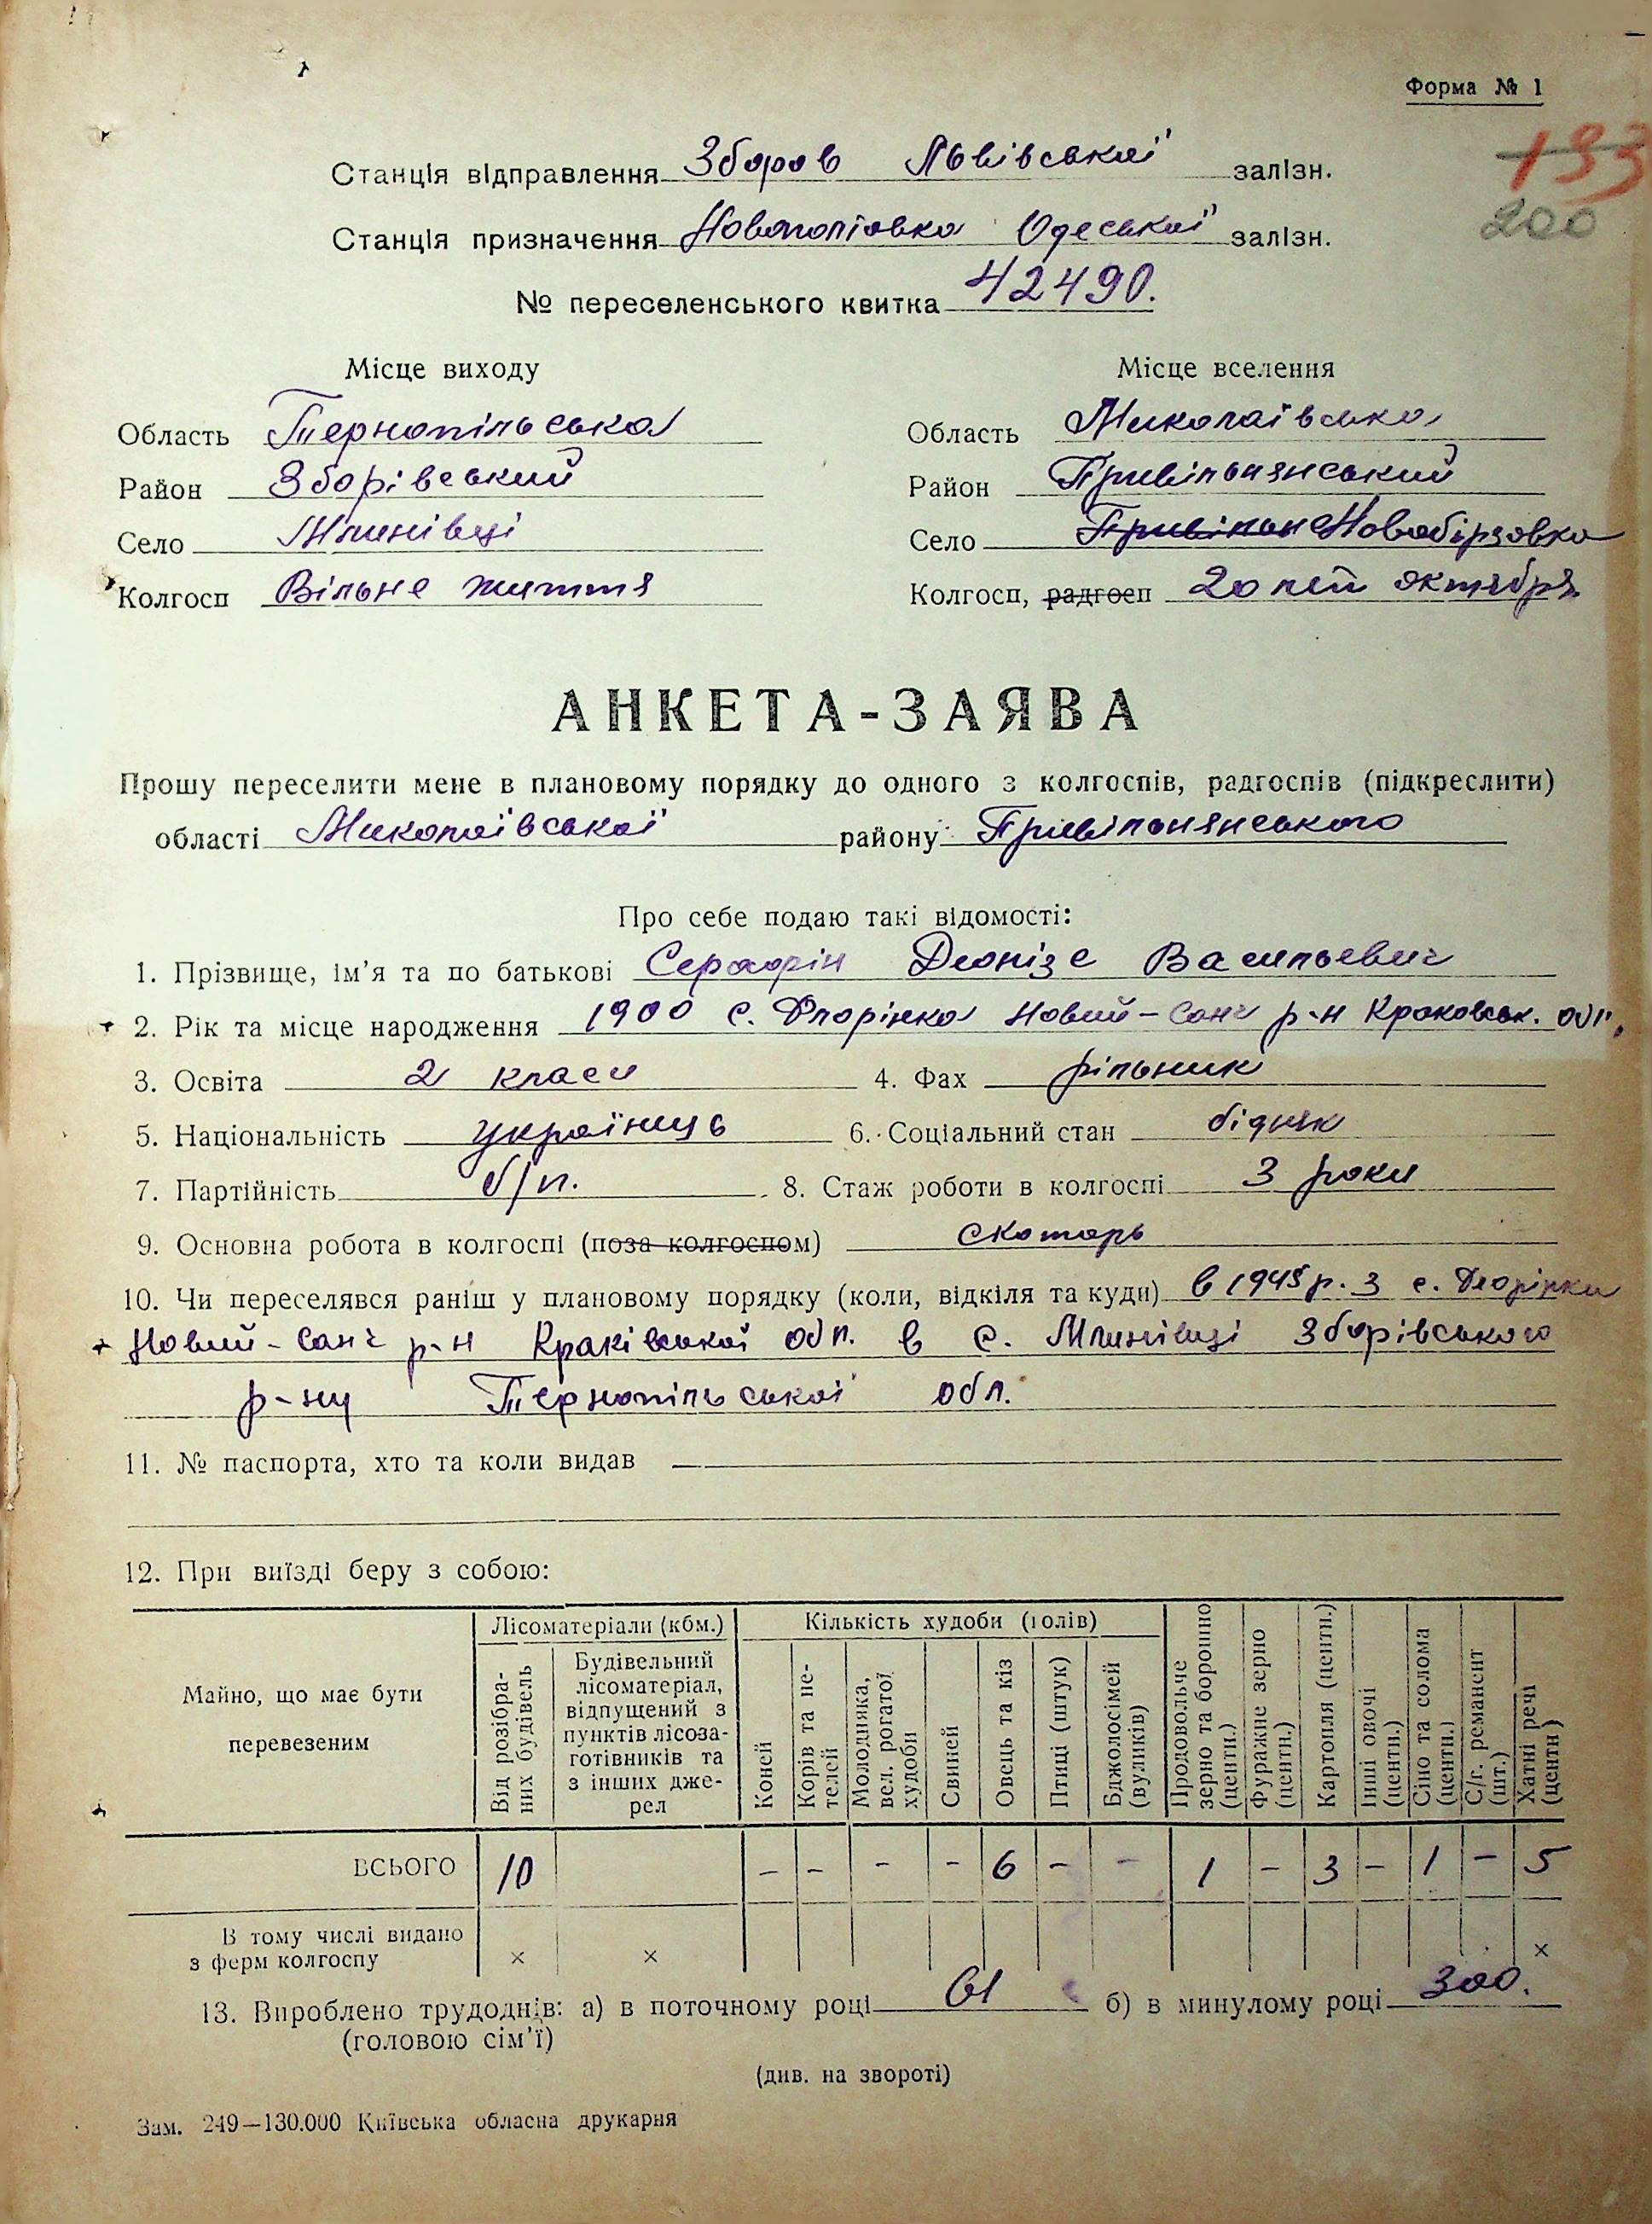 Форма № 1
193
200
Станція відправлення Зборов Львівської залізн.
Станція призначення Новополтовка Одеської залізн.
№ переселенського квитка 42490.
Місце виходу
Місце вселення
Область Тернопільська
Область Миколаївська
Район Зборівський
Район Привільнянський
Село Млинівці
Село Привільн Новобірзовка
Колгосп Вільне життя
Колгосп, радгосп 20 лет октября
АНКЕТА-ЗАЯВА
Прошу переселити мене в плановому порядку до одного з колгоспів, радгоспів (підкреслити)
області Миколаївської району Привільнянського
Про себе подаю такі відомості:
1. Прізвище, ім'я та по батькові Серафін Деонізе Васильевич
2. Рік та місце народження 1900 с. Фльорінка Новий-Санч р-н Краковськ. обл.
3. Освіта 2 класи 4. Фах рільник
5. Національність українець 6. Соціальний стан бідняк
7. Партійність б/п. 8. Стаж роботи в колгоспі 3 роки
9. Основна робота в колгоспі (поза колгоспом) скотарь
10. Чи переселявся раніш у плановому порядку (коли, відкіля та куди) в 1945 р. з с.
Новий-Санч р-н Краківської обл. в с. Млинівці Зборівського
р-ну Тернопільської обл.
11. № паспорта, хто та коли видав —
12. При виїзді беру з собою:
Майно, що має бути перевезеним
Лісоматеріали (кбм.)
Від розібраних будівель
Будівельний лісоматеріал, відпущений з пунктів лісозаготівників та з інших джерел
Кількість худоби (голів)
Коней
Корів та нетелей
Молодняка, вел. рогатої худоби
Свиней
Овець та кіз
Птиці (штук)
Бджолосімей (вуликів)
Продовольче зерно та борошно (центн.)
Фуражне зерно (центн.)
Картопля (центн.)
Інші овочі (центн.)
Сіно та солома (центн.)
С/г. реманент (шт.)
Хатні речі (центн)
ВСЬОГО 10 – – – – 6 – – 1 – 3 – 1 – 5
В тому числі видано
з ферм колгоспу × × ×
13. Вироблено трудоднів: а) в поточному році 61 б) в минулому році 300.
(головою сім'ї)
(див. на звороті)
Зам. 249—130.000 Київська обласна друкарня